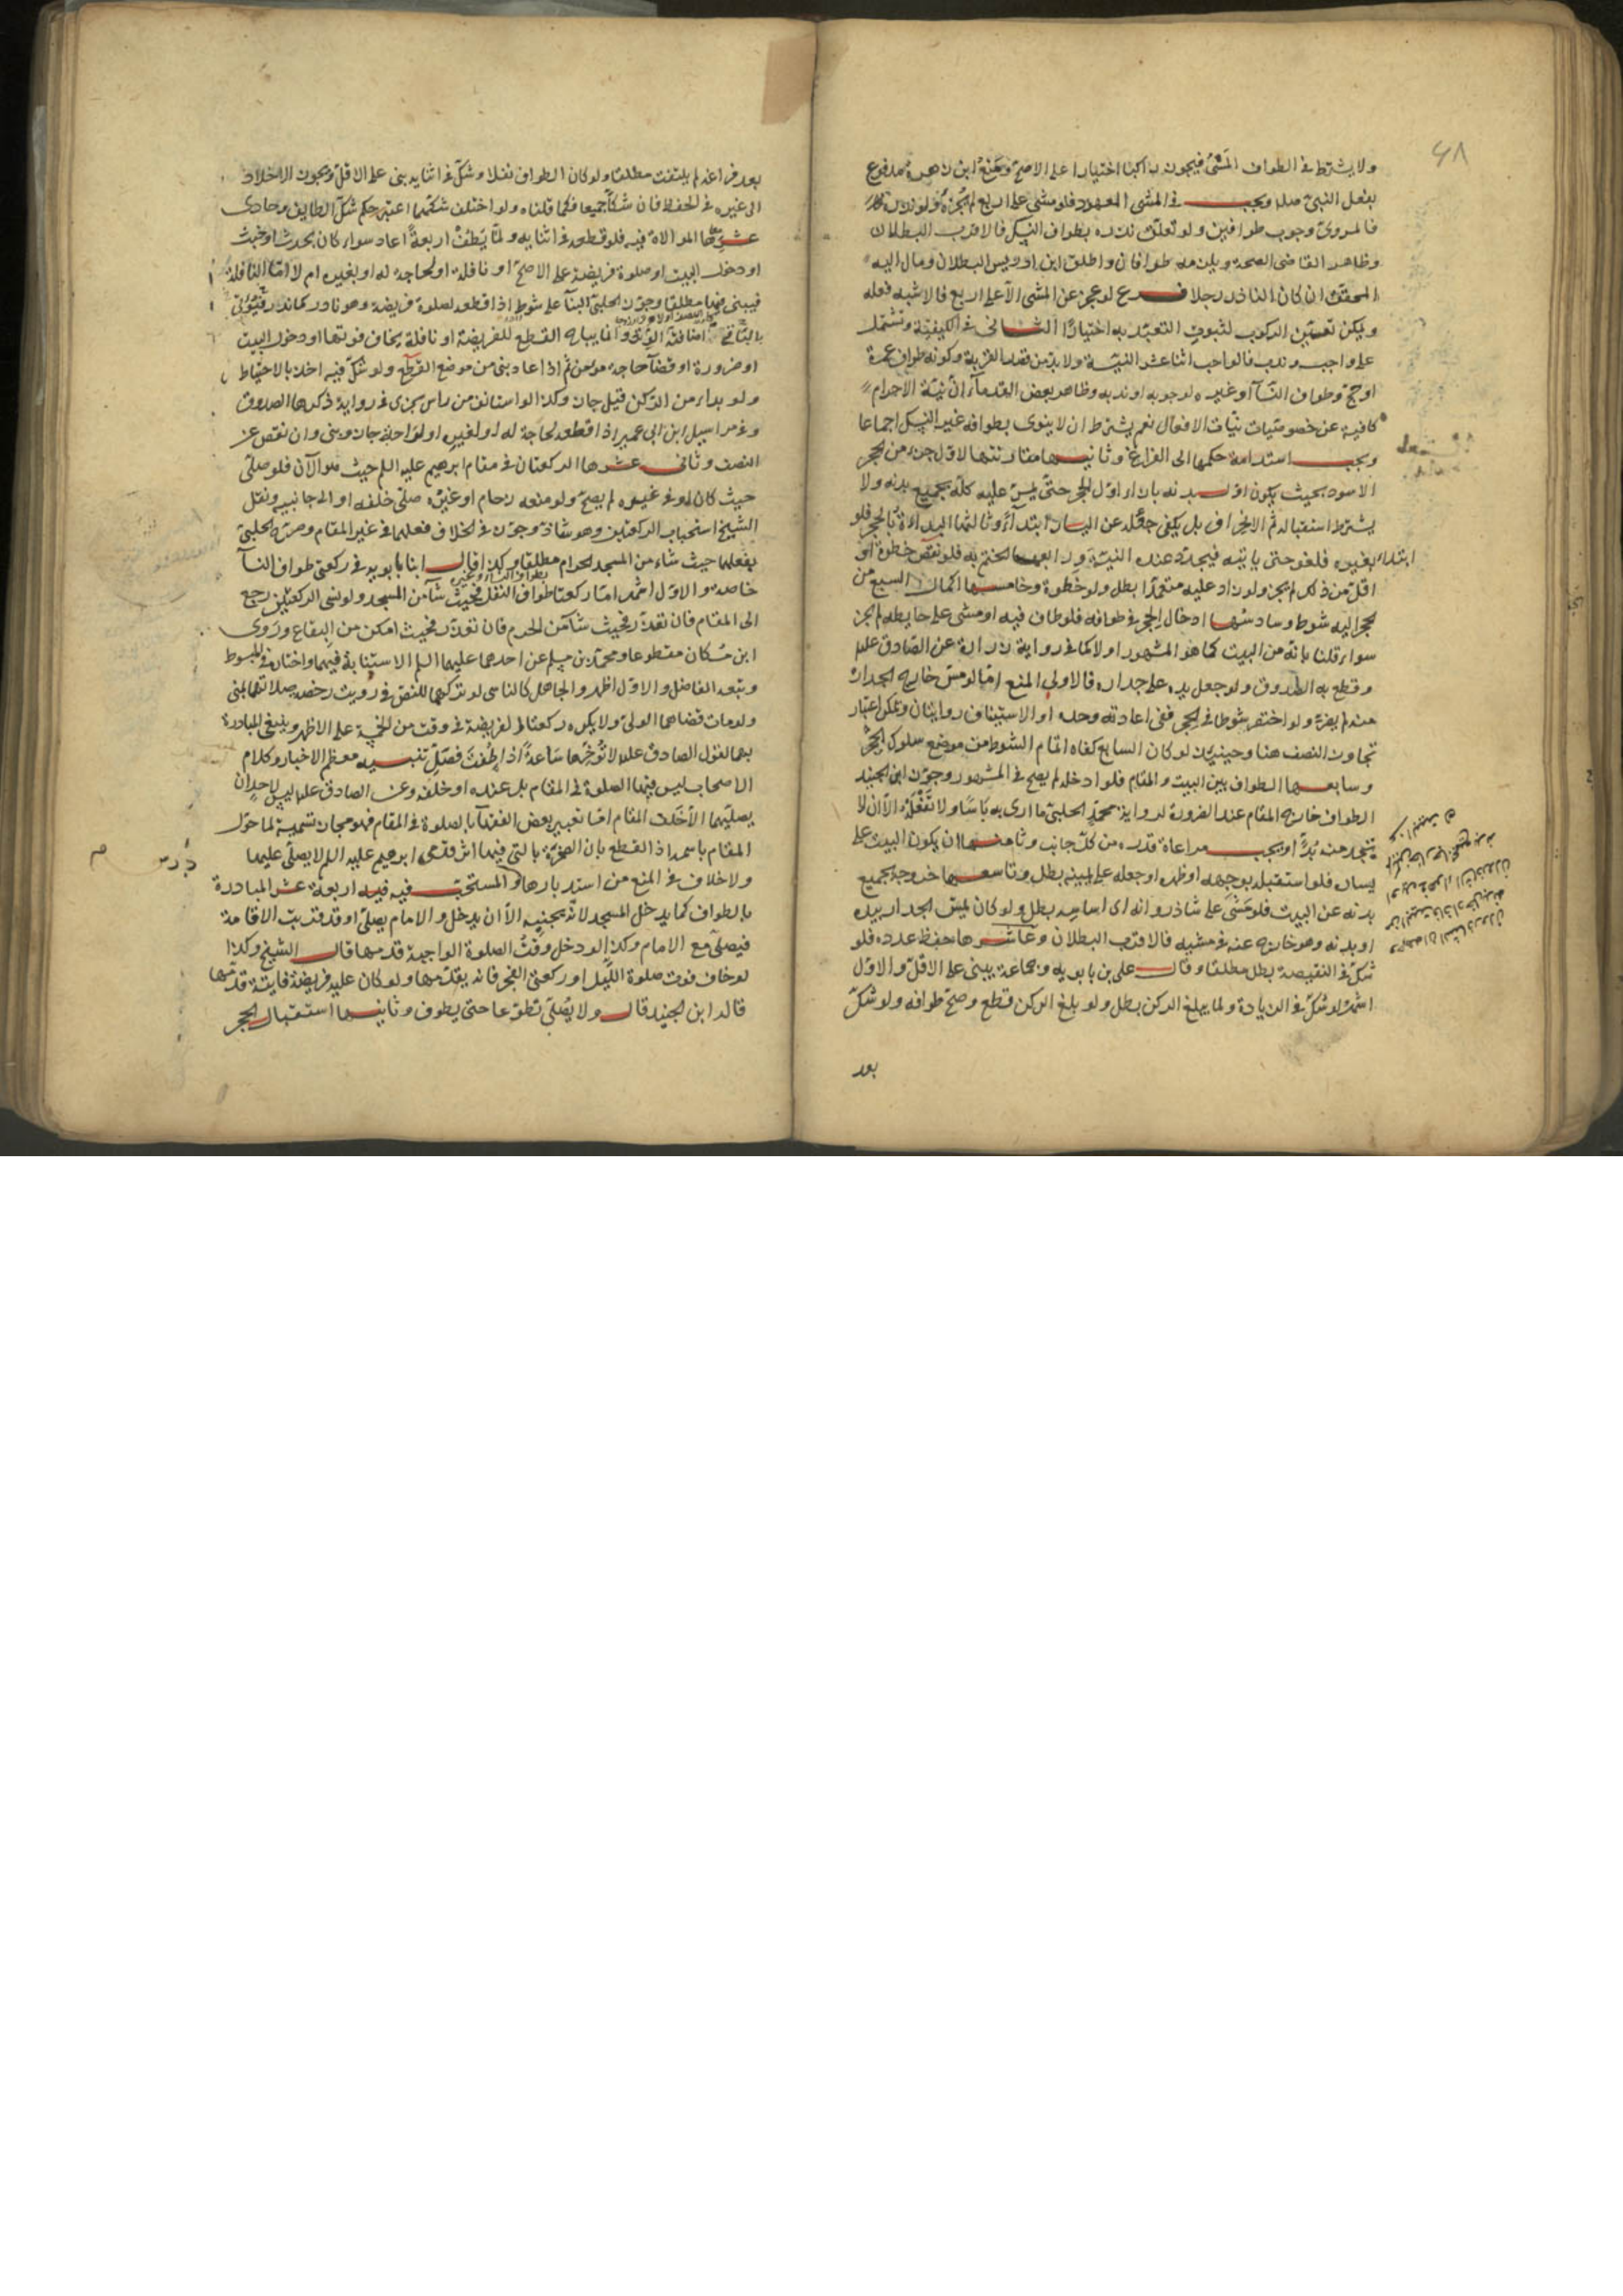 ولا يشترط في الطواف المشي فيجوز راكبا اختيارا على الاصح ومنع ابن زهرة مدفوع
بفعل النبي صلى ويجب في المشي المعهود فلو مشى على اربع لم يجزه ولو نذره
فالمروي وجوب طوافين ولو تعلق نذره بطواف النسك فالاقرب البطلان
وظاهر القاضي الصحة ويلزمه طوافان واطلق ابن ادريس البطلان ومال اليه
المحقق ان كان الناذر رجلا فرع لو عجز عن المشي الا على اربع فالاشبه فعله
ويمكن تعين الركوب لثبوت التعبد به اختيارا الثاني في الكيفية وتشتمل
على واجب وندب فالواجب اثنا عشر النية ولا بد من قصد القربة وكونه طواف عمرة
او حج وطواف النسآ او غيره لوجوبه او ندبه وظاهر بعض القدمآء ان نية الاحرام
كافية عن خصوصيات نيات الافعال نعم يشترط ان لا ينوى بطوافه غير النسك اجماعا
ويجب استدامة حكمها الى الفراغ وثانيها مقارنتها لاول جزء من الحجر
الاسود بحيث يكون اول بدنه بازاء اول الحجر حتى يمر عليه كله بجميع بدنه ولا
يشترط استقباله ثم الانحراف بل يكفي جعله عن اليسار ابتدآء وثالثها البدأة بالحجر فلو
ابتداء بغيره فلغو حتى ياتيه فيجدد عنده النية ورابعها الختم به فلو نقص خطوة او
اقل من ذلك لم يجز ولو زاد عليه متعمدا بطل ولو خطوة وخامسها اكمال السبع من
الحجر اليه شوط وسادسها ادخال الحجر في طوافه فلو طاف فيه او مشى على حايطه لم يجز
سواء قلنا بانه من البيت كما هو المشهور او لا كما في رواية زرارة عن الصادق عليه
وقطع به الصدوق ولو جعل يده على جداره فالاولى المنع امّا لو مس خارج الجدار
منه لم يضره ولو اختصر شوطا في الحجر ففي اعادته وحده او الاستيناف روايتان ويمكن اعتبار
تجاوز النصف هنا وحينئذ لو كان السابع كفاه اتمام الشوط من موضع سلوك الحجر
وسابعها الطواف بين البيت والمقام فلو ادخله لم يصح في المشهور وجوز ابن الجنيد
الطواف خارج المقام عند الضرورة لرواية محمد الحلبي ما ارى به باسا ولا تفعله الا ان لا
تجد منه بدا ويجب مراعاة قدره من كل جانب وثامنها ان يكون البيت على
يساره فلو استقبله بوجهه او ظهره او جعله على يمينه بطل وتاسعها خروجه بجميع
بدنه عن البيت فلو مشى على شاذروانه اى اساسه بطل ولو كان يمس الجدار بيده
او بدنه وهو خارج عنه في مشيه فالاقرب البطلان وعاشرها حفظ عدده فلو
شك في النقيصة بطل مطلقا وقال على بن بابويه وجماعة يبنى على الاقل والاول
اشهر لو شك في الزيادة ولما يبلغ الركن بطل ولو بلغ الركن قطع وصح طوافه ولو شك
بعد
بعد فراغه لم يلتفت مطلقا ولو كان الطواف نفلا وشك في اثنايه بنى على الاقل ويجوز الاخلاد
الى غيره في الحفظ فان شكا جميعا فكما قلناه ولو اختلف شكهما اعتبر حكم شك الطايف وحادى
عشرها الموالاة فيه فلو قطعه في اثنايه ولما يطف اربعة اعاد سواء كان لحدث او خبث
او دخول البيت او صلوة فريضة على الاصح او نافلة او لحاجة له او لغيره ام لا امّا النافلة
فيبنى فيها مطلقا وجوز الحلبي البنآ على شوط اذا قطعه لصلوة فريضة وهو نادر كما ندر
اضافة الوتر وانما يباح القطع لفريضة او نافلة يخاف فوتها او دخول البيت
او ضرورة او قضآء حاجة مؤمن ثم اذا عاد بنى من موضع القطع ولو شك فيه اخذ بالاحتياط
ولو بداء من الركن قيل جاز وكذا لو استانف من راس يجزى في رواية ذكرها الصدوق
وفي مراسيل ابن ابى عمير اذا قطعه لحاجة له او لغيره او لراحة جاز وبنى وان نقص عن
النصف وثاني عشرها الركعتان في مقام ابرهيم عليه السلم حيث هو الآن فلو صلى
في غيره لم يصح ولو منعه زحام او غيره صلى خلفه او الى جانبيه ونقل
الشيخ استحباب الركعتين وهو شاذ وجوز في الخلاف فعلهما في غير المقام وصرح الحلبي
بفعلهما حيث شاء من المسجد الحرام مطلقا وكذا قال ابنا بابويه في ركعتي طواف النسآ
خاصة والاول اشهر امّا ركعتا طواف النفل فحيث شآء من المسجد ولو نسى الركعتين رجع
الى المقام فان تعذر فحيث شآء من الحرم فان تعذر فحيث امكن من البقاع وروى
ابن مسكان مقطوعا ومحمد بن مسلم عن احدهما عليهما السلم الاستنابة فيهما واختاره في المبسوط
وتبعه الفاضل والاول اظهر والجاهل كالناسي لو تركهما للنص ورويت رخصة صلاتهما بمنى
ولو مات قضاهما الولى ولا يكره ركعتا الفريضة في وقت من الخمسة على الاظهر وينبغى المبادرة
بهما لقول الصادق عليه لا تؤخرها ساعة اذا طفت فصل تنبيه معظم الاخبار وكلام
الاصحاب ليس فيهما الصلوة في المقام بل عنده او خلفه وعن الصادق عليه ليس لاحد ان
يصليهما الا خلف المقام امّا تعبير بعض الفقهآء بالصلوة في المقام فهو مجاز تسمية لما حول
المقام باسمه اذ القطع بان الصخرة التي فيها اثر قدمى ابرهيم عليه السلم لا يصلى عليها
ولا خلاف في المنع من استدبارها والمستحب فيه اربعة عشر المبادرة
بالطواف كما يدخل المسجد لانه تحيته الا ان يدخل والامام يصلى او قد قربت الاقامة
فيصلى مع الامام وكذا لو دخل وقت الصلوة الواجبة قدمها قال الشيخ وكذا
لو خاف فوت صلوة الليل او ركعتي الفجر فانه يقدمها ولو كان عليه فريضة فايتة قدمها
قاله ابن الجنيد قال ولا يصلى تطوعا حتى يطوف وثانيها استقبال الحجر